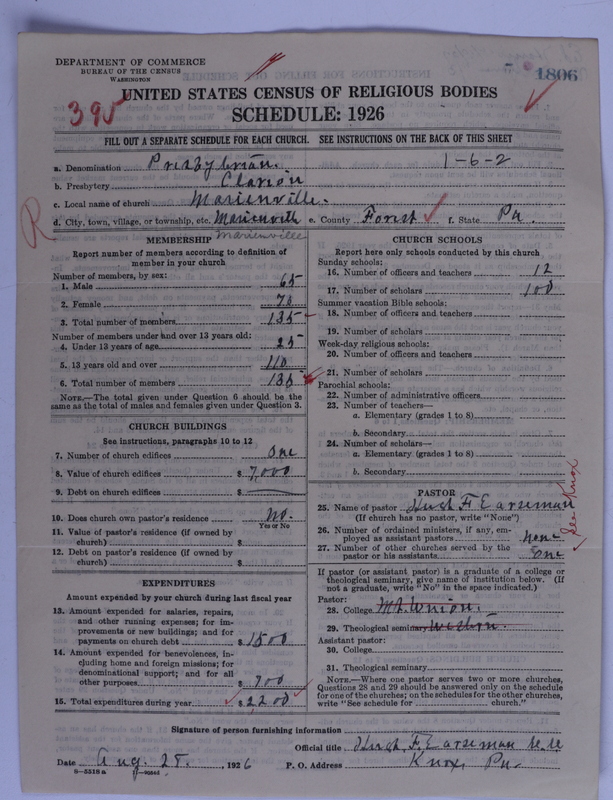 DEPARTMENT OF COMMERCE
BUREAU OF THE CENSUS
WASHINGTON
1806
395
UNITED STATES CENSUS OF RELIGIOUS BODIES
SCHEDULE: 1926
FILL OUT A SEPARATE SCHEDULE FOR EACH CHURCH. SEE INSTRUCTIONS ON THE BACK OF THIS SHEET
a. Denomination Presbyterian 1-6-2
b. Presbytery Clarion
c. Local name of church Marienville
d. City, town, village, or township, etc. Marienville e. County Forest f. State Pa.
Marienville
R
MEMBERSHIP
Report number of members according to definition of
member in your church
Number of members, by sex:
1. Male 65
2. Female 70
3. Total number of members 135
Number of members under and over 13 years old:
4. Under 13 years of age 25
5. 13 years old and over 110
6. Total number of members 135
NOTE.—The total given under Question 6 should be
same as the total of males and females given under Question 3.
CHURCH BUILDINGS
See instructions, paragraphs 10 to 12
7. Number of church edifices One
8. Value of church edifices $ 7,000
9. Debt on church edifices $
10. Does church own pastor's residence No.
Yes or No
11. Value of pastor's residence (if owned by
church) $
12. Debt on pastor's residence (if owned by
church) $
EXPENDITURES
Amount expended by your church during last fiscal year
13. Amount expended for salaries, repairs,
and other running expenses; for im-
provements or new buildings; and for
payments on church debt $ 1500
14. Amount expended for benevolences, in-
cluding home and foreign missions; for
denominational support; and for all
other purposes $ 700
15. Total expenditures during year $ 2200
CHURCH SCHOOLS
Report here only schools conducted by this church
Sunday schools:
16. Number of officers and teachers 12
17. Number of scholars 100
Summer vacation Bible schools:
18. Number of officers and teachers
19. Number of scholars
Week-day religious schools:
20. Number of officers and teachers
21. Number of scholars
Parochial schools:
22. Number of administrative officers
23. Number of teachers—
a. Elementary (grades 1 to 8)
b. Secondary
24. Number of scholars—
a. Elementary (grades 1 to 8)
b. Secondary
PASTOR
25. Name of pastor Hugh F Earseman
(If church has no pastor, write "None")
26. Number of ordained ministers, if any, em-
ployed as assistant pastors None
27. Number of other churches served by the
pastor or his assistants One
See Knox
If pastor (or assistant pastor) is a graduate of a college or
theological seminary, give name of institution below. (If
not a graduate, write "No" in the space indicated.)
Pastor:
28. College Mt. Union.
29. Theological seminary Western.
Assistant pastor:
30. College
31. Theological seminary
NOTE.—Where one pastor serves two or more churches,
Questions 28 and 29 should be answered only on the schedule
for one of the churches; on the schedules for the other churches,
write "See schedule for church."
Signature of person furnishing information
Official title Hugh F. Earseman
Date Aug. 25, 1926 P. O. Address Knox, Pa.
8—5318a